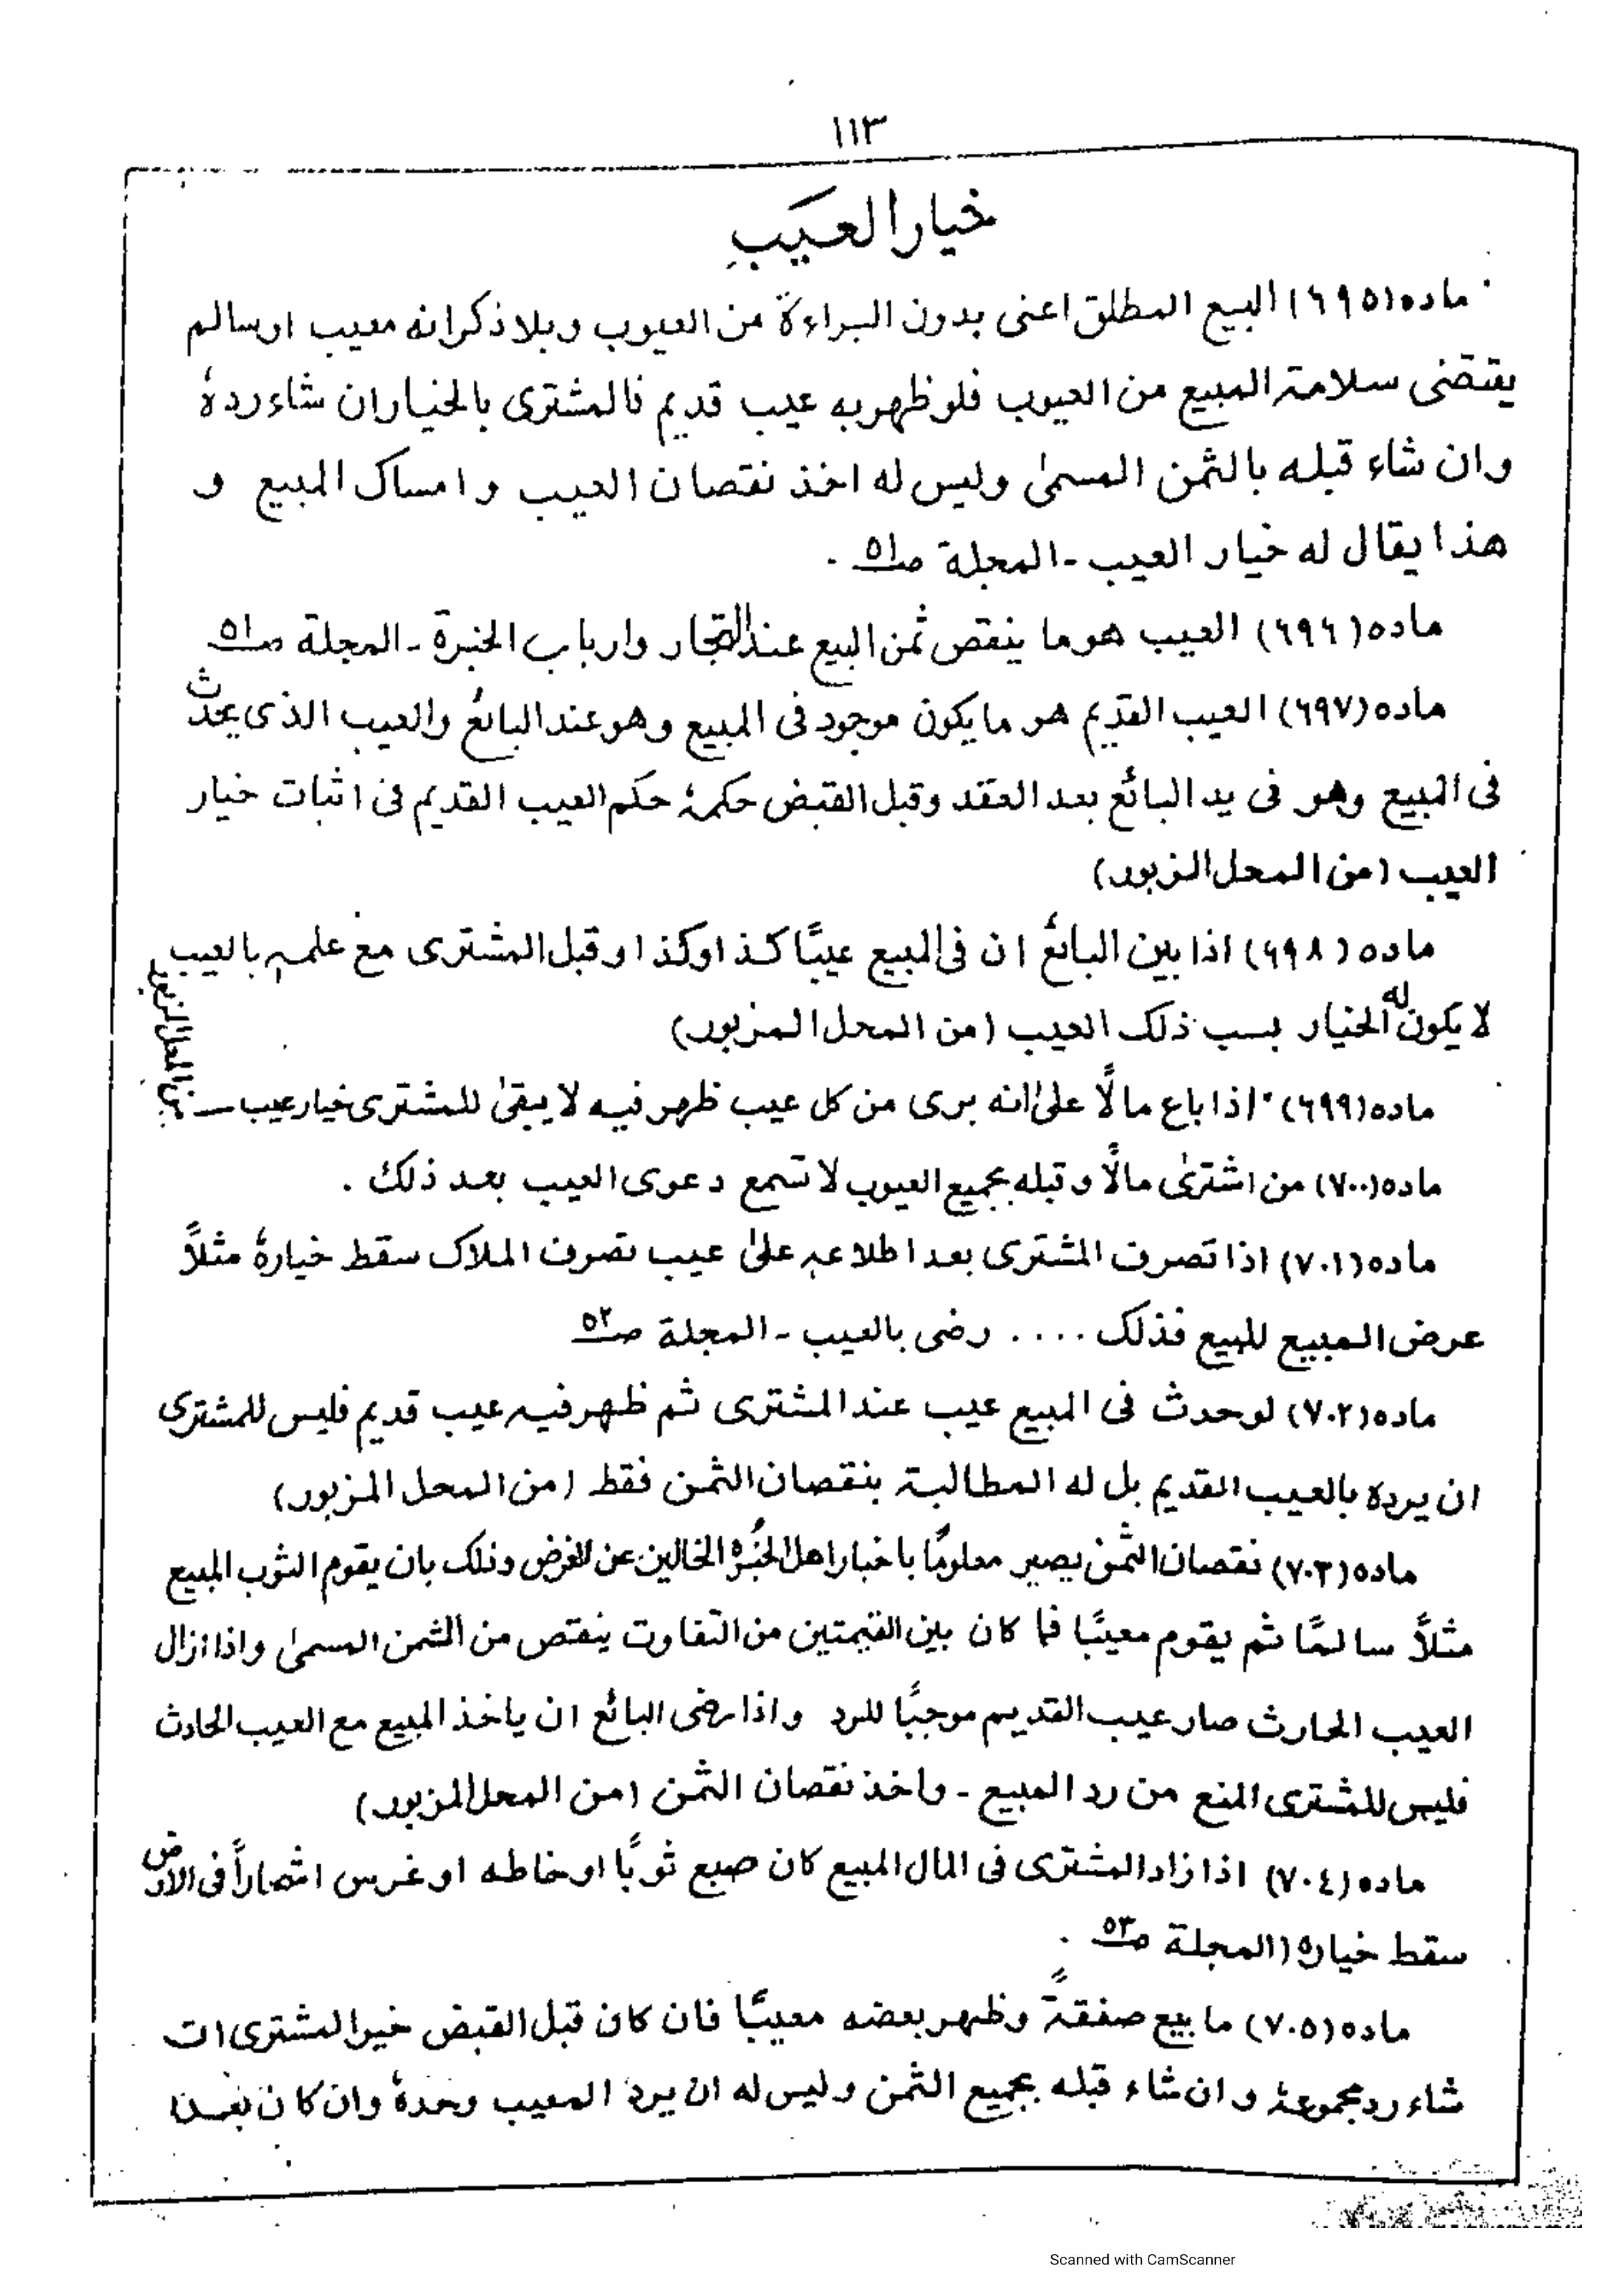 ١١٣
خيار العيب
ماده (٦٩٥) البيع المطلق اعنى بدون البراءة من العيوب وبلا ذكر انه معيب اوسالم
يقتضى سلامة المبيع من العيوب فلو ظهر به عيب قديم فالمشترى بالخيار ان شاء ردهٗ
وان شاء قبله بالثمن المسمىٰ وليس له اخذ نقصان العيب وامساك المبيع و
هذا يقال له خيار العيب ـ المجلة صـ٥١ .
ماده (٦٩٦) العيب هو ما ينقص ثمن البيع عند التجار وارباب الخبرة ـ المجلة صـ٥١
ماده (٦٩٧) العيب القديم هو ما يكون موجود فى المبيع وهو عند البائع والعيب الذى يحدث
فى المبيع وهو فى يد البائع بعد العقد وقبل القبض حكمهٗ حكم العيب القديم فى اثبات خيار
العيب (من المحل الزبور)
ماده (٦٩٨) اذا بين البائع ان فى المبيع عيبًا كذا وكذا وقبل المشترى مع علمه بالعيب
لا يكون له الخيار بسب ذلك العيب (من المحل المزبور)
ماده (٦٩٩) اذا باع مالًا علىٰ انه برى من كل عيب ظهر فيه لا يبقىٰ للمشترى خيار عيب ـ من المحل المزبور
ماده (٧٠٠) من اشترىٰ مالًا وقبله بجميع العيوب لا تسمع دعوى العيب بعد ذلك .
ماده (٧٠١) اذا تصرف المشترى بعد اطلاعه علىٰ عيب تصرف الملاك سقط خيارهٗ مثلاً
عرض المبيع للبيع فذلك .... رضى بالعيب ـ المجلة صـ٥٢
ماده (٧٠٢) لوحدث فى المبيع عيب عند المشترى ثم ظهر فيه عيب قديم فليس للمشترى
ان يرده بالعيب القديم بل له المطالبة بنقصان الثمن فقط (من المحل المزبور)
ماده (٧٠٣) نقصان الثمن يصير معلومًا باخبار اهل الخبرة الخالين عن الغرض وذلك بان يقوم الثوب المبيع
مثلاً سالمًا ثم يقوم معيبًا فما كان بين القيمتين من التفاوت ينقص من الثمن المسمىٰ واذا زال
العيب الحارث صار عيب القديم موجبًا للرد واذا رضى البائع ان ياخذ المبيع مع العيب الحادث
فليس للمشترى المنع من رد المبيع ـ واخذ نقصان الثمن (من المحل المزبور)
ماده (٧٠٤) اذا زاد المشترى فى المال المبيع كان صبع ثوبًا او خاطه او غرس اشجاراً فى الارض
سقط خياره (المجلة صـ٥٣ .
ماده (٧٠٥) ما بيع صفقةً وظهر بعضه معيبًا فان كان قبل القبض خير المشترى ان
شاء رد مجموعهٗ وان شاء قبله بجميع الثمن وليس له ان يرد المعيب وحدهٗ وان كان بعد
Scanned with CamScanner